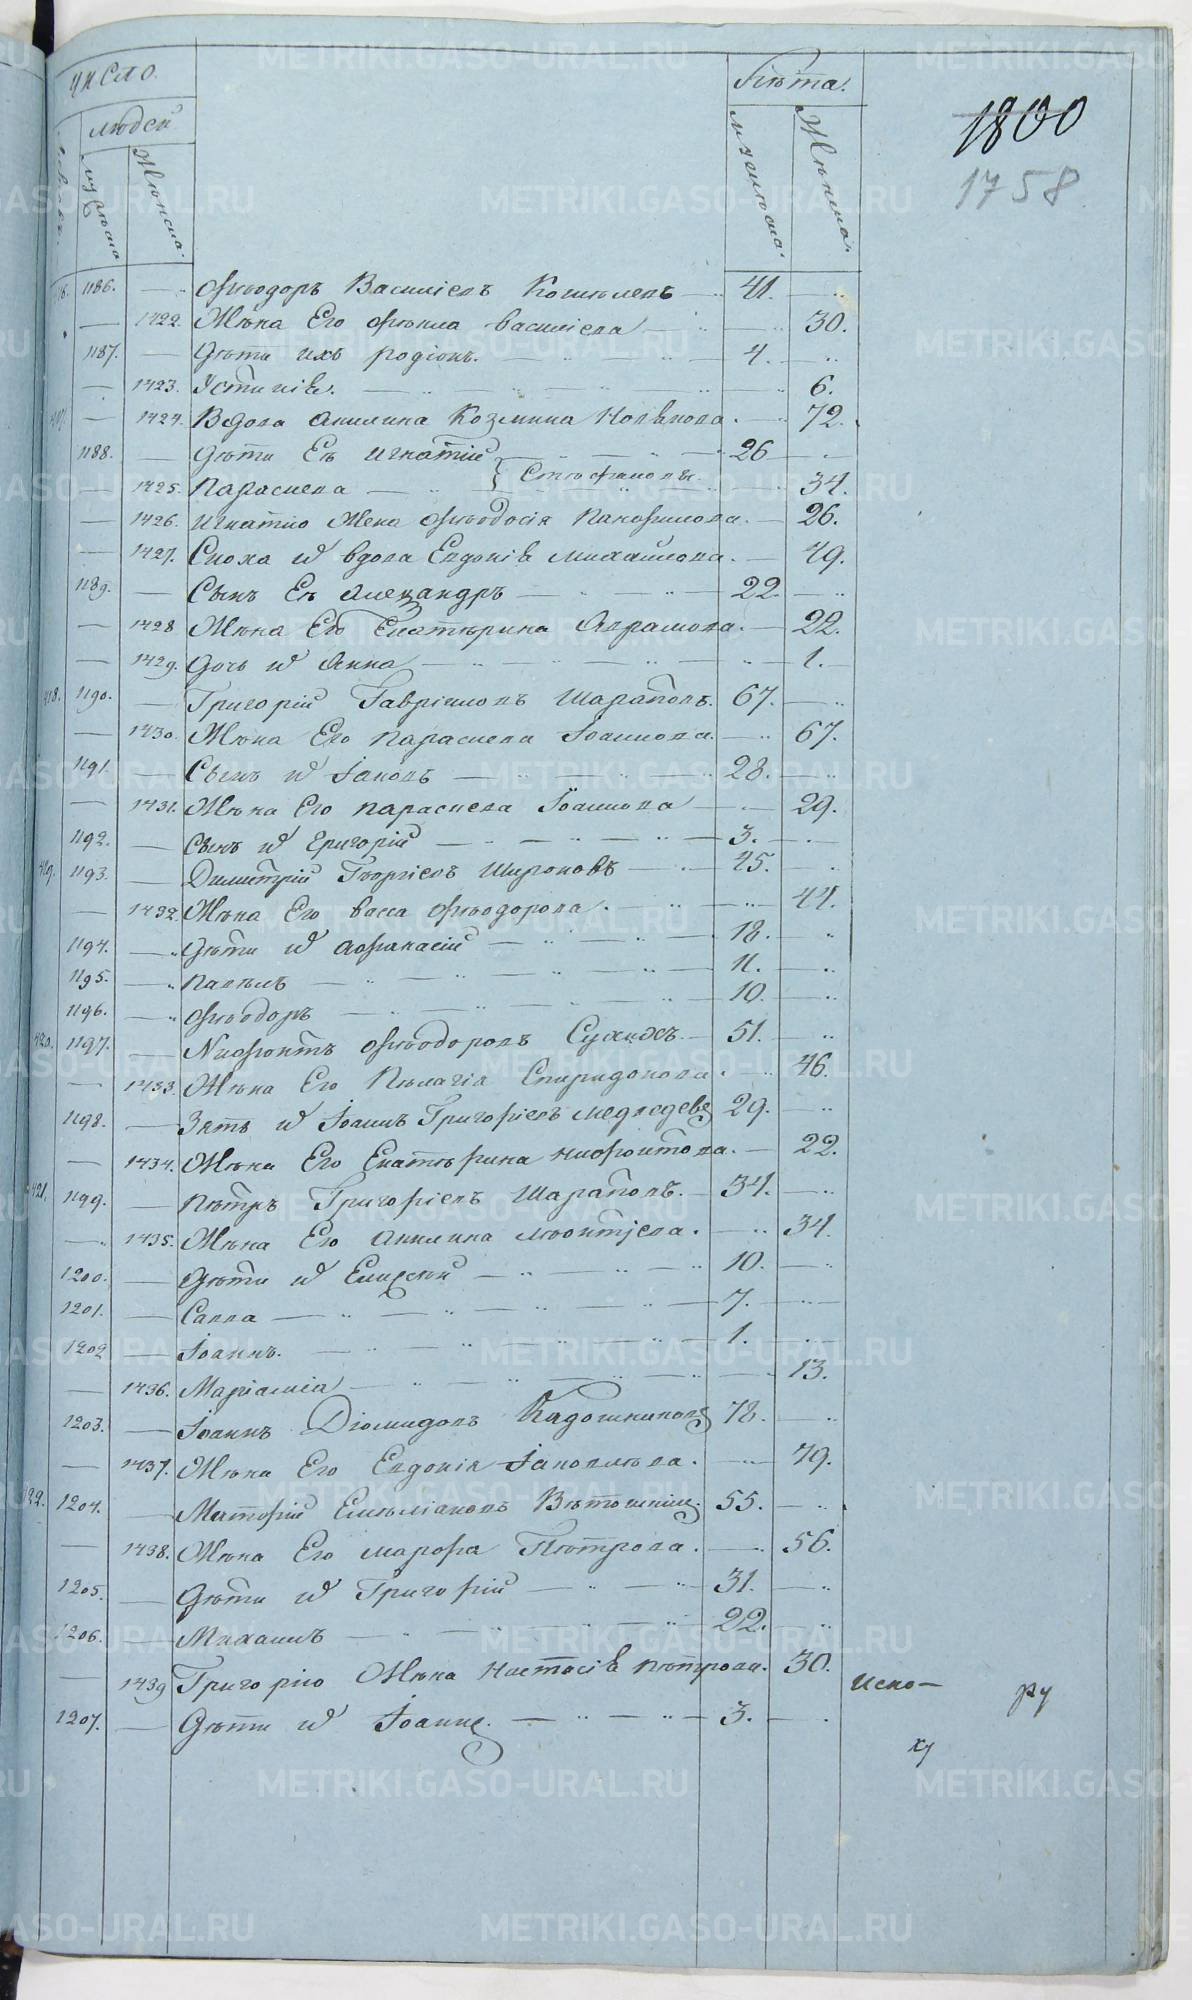 число
Лѣта.
людей
мужска
Женска.
мужеска.
Женска.
1800
1758
1186. Ѳеодоръ Василіевъ Кошелевъ 41.
1422. Жена Его Ѳекла Василіева 30.
1187. Дѣти ихъ Родіонъ. 4.
1423. Устинія. 6.
417. 1424. Вдова Акилина Козмина 72.
1188. Дѣти Ея Игнатій 26
Стефановы.
1425. Параскева 34.
1426. Игнатію Жена Ѳеодосія Панфилова. 26.
1427. Сноха и вдова Евдокія Михаилова. 49.
1189. Сынъ Ея Александръ 22
1428 Жена Его Екатерина Аврамова. 22.
1429. Дочь их Анна 1.
418. 1190. Григорій Гавріиловъ Шараповъ. 67.
1430. Жена Его Параскева Іоаннова. 67.
1191. Сынъ их Іаковъ 28.
1431. Жена Его Параскева Іоаннова 29.
1192. Сынъ их Григорій 3.
419. 1193. Димитрій Георгіевъ Широковъ 45.
1432. Жена Его Васса Ѳеодорова. 44.
1194. Дѣти их Аѳанасій 18.
1195. Павелъ 11.
1196. Ѳеодоръ 10.
420. 1197. Ниѳонтъ Ѳеодоровъ Сухихъ. 51.
1433. Жена Его Пелагія Спиридонова. 46.
1198. Зять их Іоаннъ Григоріевъ Медведевъ 29.
1434. Жена Его Екатерина Ниѳонтова. 22.
421. 1199. Петръ Григоріевъ Шараповъ. 34.
1435. Жена Его Акилина Леонтіева. 34.
1200. Дѣти их Елисей 10.
1201. Савва 7.
1202 Іоаннъ. 1.
1436. Маріамія 13.
1203. Іоаннъ Діомидовъ Кадошниковъ 78.
1437. Жена Его Евдокія Іаковлева. 79.
422. 1204. Матфій Емеліановъ Ветошкин. 55.
1438. Жена Его Марфа Петрова. 56.
1205. Дѣти их Григорій 31.
1206. Михаилъ 22.
1439 Григорію Жена Настасія Петрова. 30.
1207. Дѣти их Іоаннъ. 3.
ру
ху
METRIKI.GASO-URAL.RU